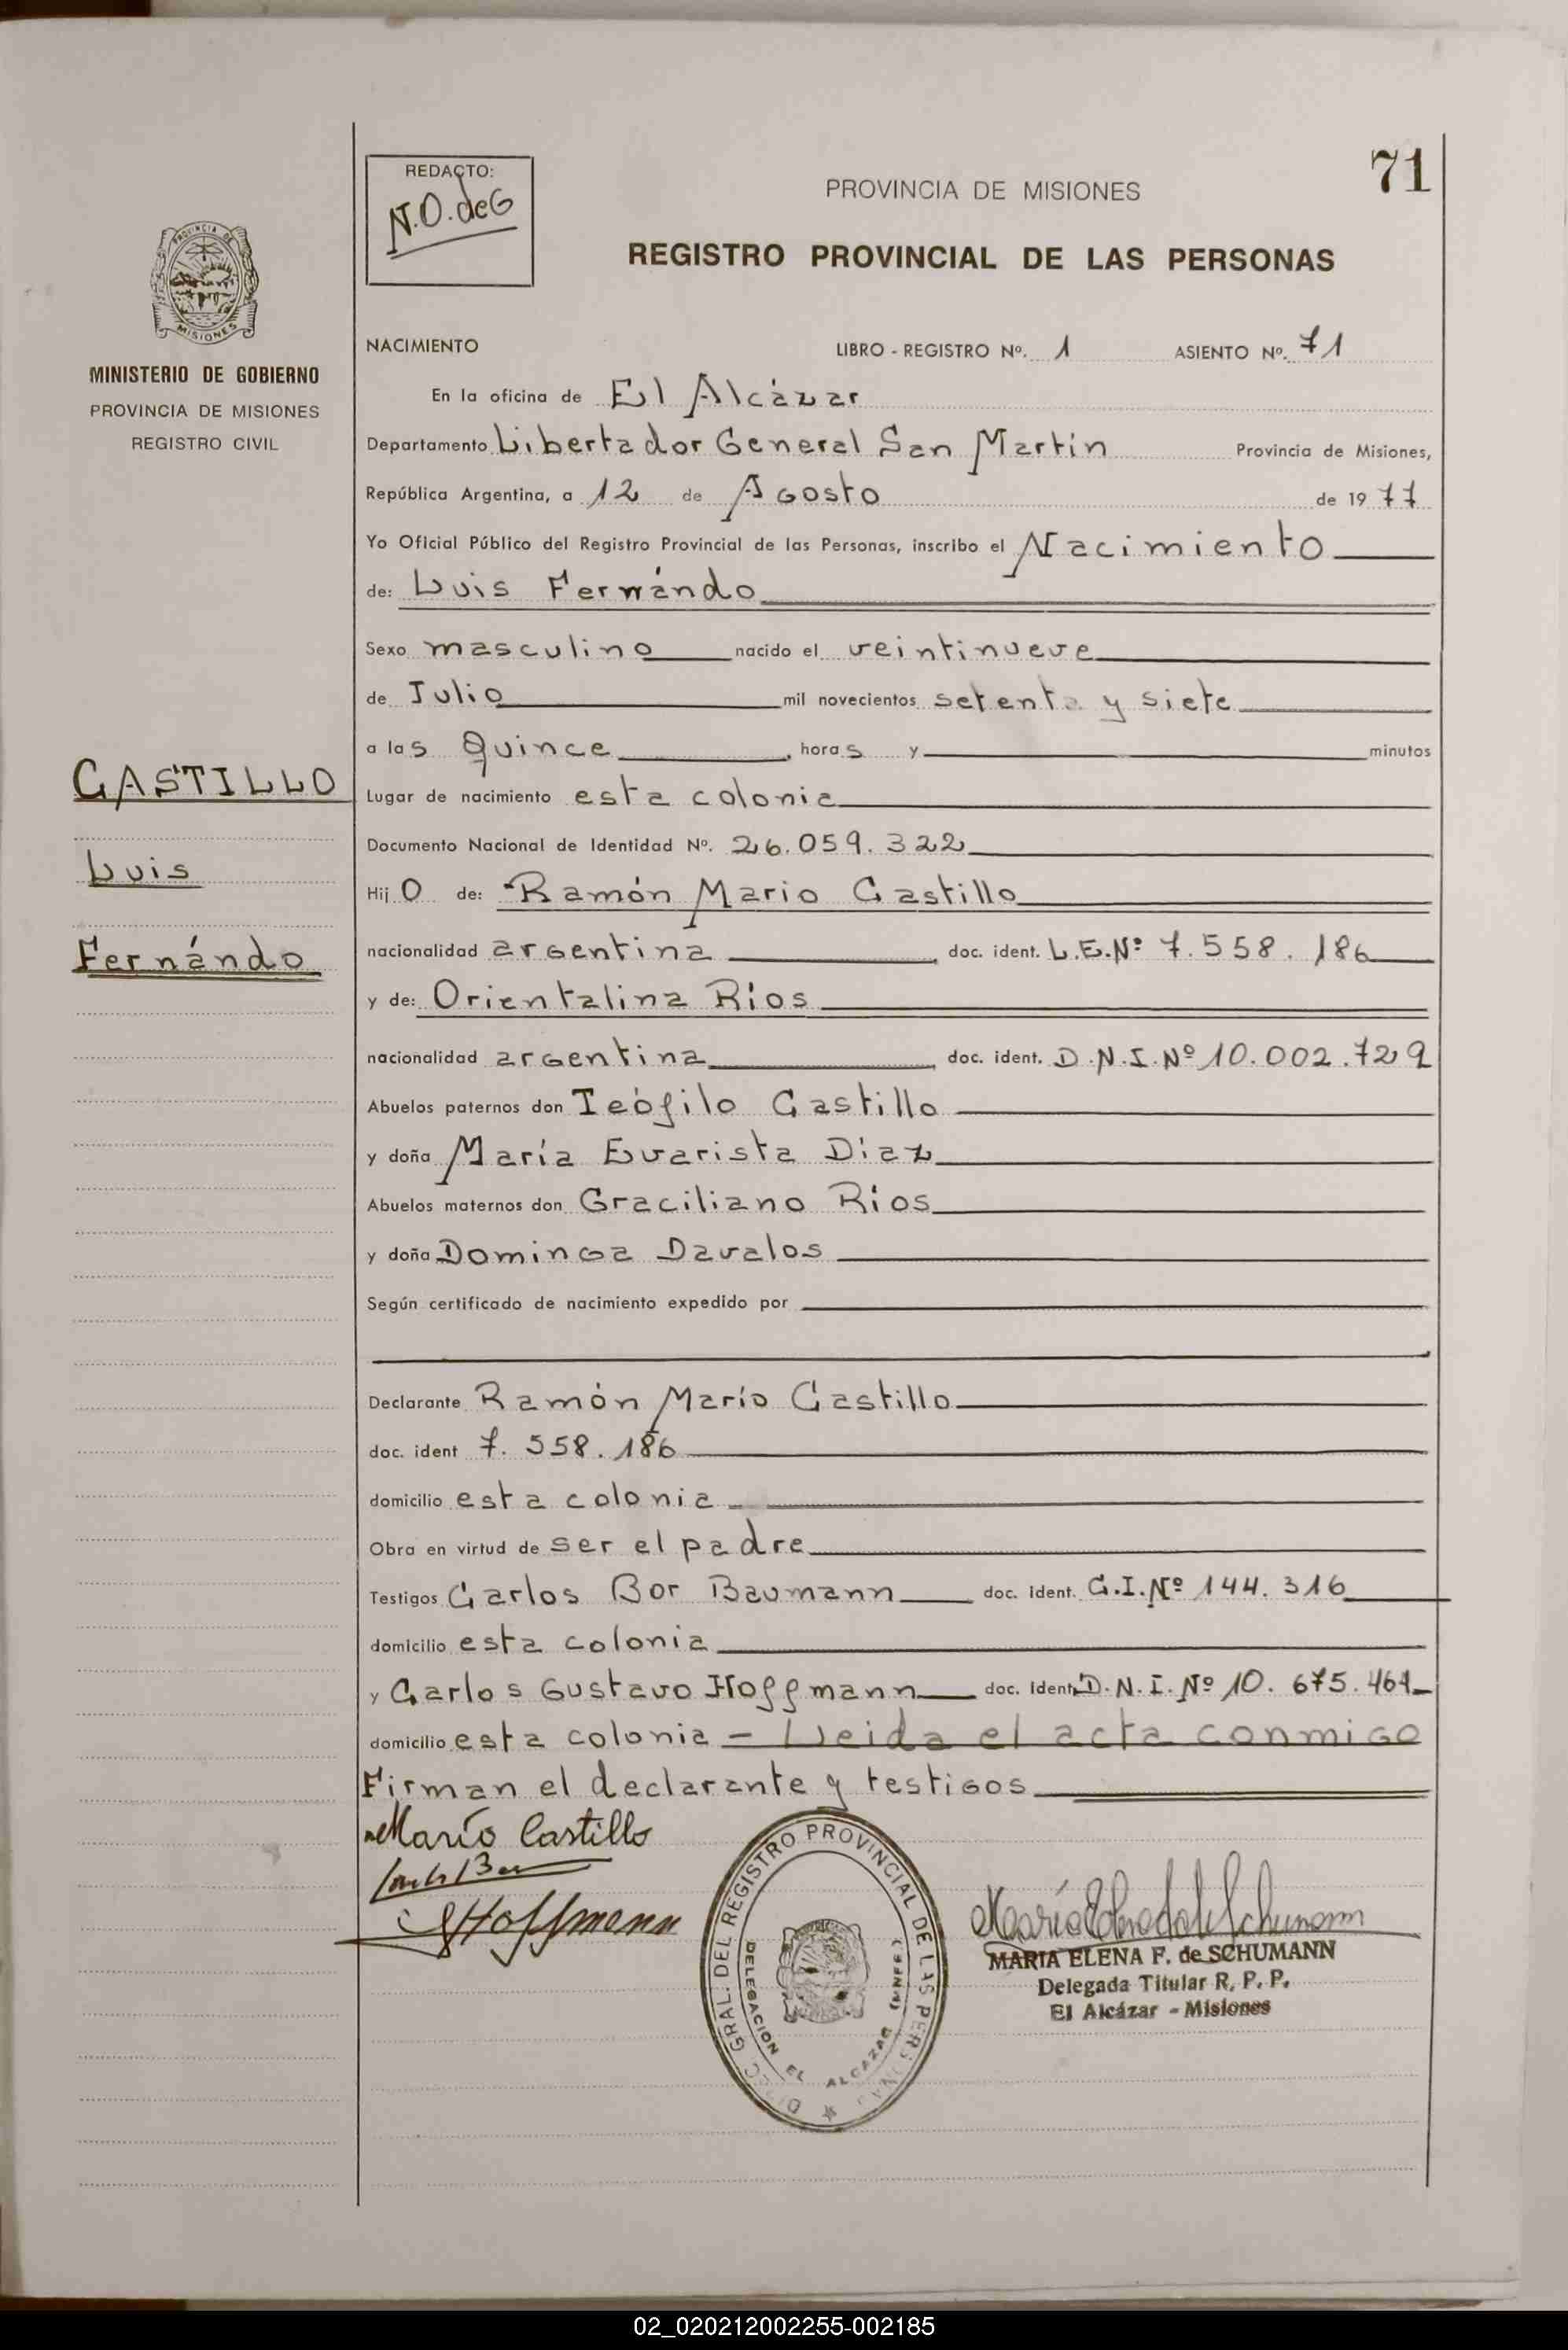 71
REDACTO:
N.O. de G
PROVINCIA DE MISIONES
REGISTRO PROVINCIAL DE LAS PERSONAS
PROVINCIA DE
MISIONES
MINISTERIO DE GOBIERNO
PROVINCIA DE MISIONES
REGISTRO CIVIL
CASTILLO
Luis
Fernándo
NACIMIENTO LIBRO - REGISTRO Nº. 1 ASIENTO Nº. 71
En la oficina de El Alcázar
Departamento Libertador General San Martín Provincia de Misiones,
República Argentina, a 12 de Agosto de 1977
Yo Oficial Público del Registro Provincial de las Personas, inscribo el Nacimiento
de: Luis Fernándo
Sexo masculino nacido el veintinueve
de Julio mil novecientos setenta y siete
a las Quince, horas y minutos
Lugar de nacimiento esta colonia
Documento Nacional de Identidad Nº. 26.059.322
Hijo de: Ramón Mario Castillo
nacionalidad argentina, doc. ident. L.E.Nº 7.558.186
y de: Orientalina Ríos
nacionalidad argentina, doc. ident. D.N.I.Nº 10.002.729
Abuelos paternos don Teófilo Castillo
y doña María Evarista Díaz
Abuelos maternos don Graciliano Ríos
y doña Dominga Davalos
Según certificado de nacimiento expedido por
Declarante Ramón Marío Castillo
doc. ident 7.558.186
domicilio esta colonia
Obra en virtud de ser el padre
Testigos Carlos Bor Baumann doc. ident. C.I.Nº 144.316
domicilio esta colonia
y Carlos Gustavo Hoffmann doc. ident. D.N.I.Nº 10.675.461
domicilio esta colonia - Leida el acta conmigo
Firman el declarante y testigos
Marío Castillo
Hoffmann
DIREC. GRAL. DEL REGISTRO PROVINCIAL DE LAS PERSONAS
DELEGACION EL ALCAZAR (MNES)
MARIA ELENA F. de SCHUMANN
Delegada Titular R. P. P.
El Alcázar - Misiones
02_020212002255-002185